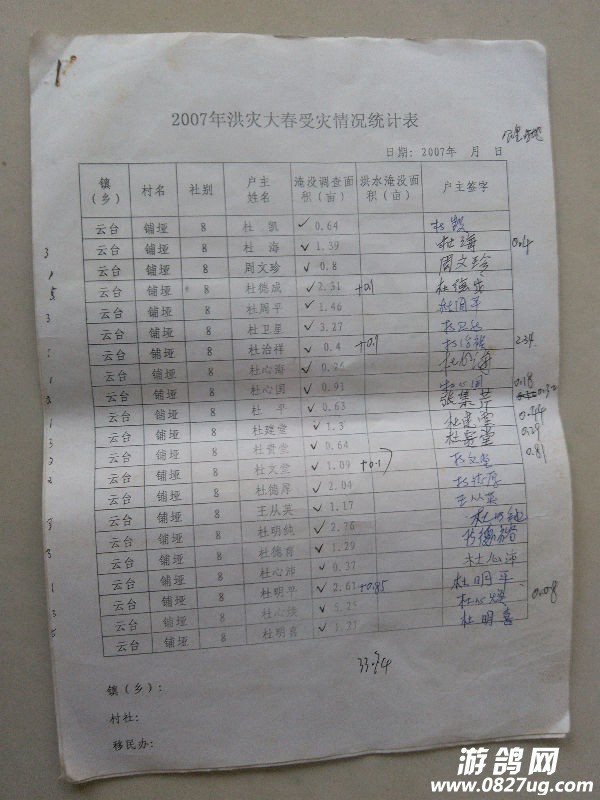 2007年洪灾大春受灾情况统计表
日期: 2007年 月 日
镇（乡） 村名 社别 户主姓名 淹没调查面积（亩） 洪水淹没面积（亩） 户主签字
云台 铺垭 8 杜 凯 ✓ 0.64
云台 铺垭 8 杜 海 ✓ 1.39 杜海 0.4
3 云台 铺垭 8 周文珍 ✓ 0.8 周文珍
1 云台 铺垭 8 杜德成 ✓ 2.31 +0.1 杜德成
5 云台 铺垭 8 杜周平 ✓ 1.46 杜周平
3 云台 铺垭 8 杜卫星 ✓ 3.27 杜卫星
云台 铺垭 8 杜治祥 ✓ 0.4 杜治祥 2.34
云台 铺垭 8 杜心海 ✓ 0.26 杜心海
云台 铺垭 8 杜心国 ✓ 0.91 杜心国 0.18
云台 铺垭 8 杜 平 ✓ 0.63 张集芹
云台 铺垭 8 杜建堂 ✓ 1.3 杜建堂 0.44
3 云台 铺垭 8 杜贵堂 ✓ 0.64 杜贵堂 0.29
云台 铺垭 8 杜文堂 ✓ 1.09 杜文堂 0.81
2 云台 铺垭 8 杜德厚 ✓ 2.04 杜德厚
云台 铺垭 8 王从英 ✓ 1.17 王从英
云台 铺垭 8 杜明纯 ✓ 2.76 杜明纯
3 云台 铺垭 8 杜德育 ✓ 1.29
云台 铺垭 8 杜心沛 ✓ 0.37 杜心沛
1 云台 铺垭 8 杜明平 ✓ 2.61 +0.85 杜明平
3 云台 铺垭 8 ✓ 0.08
5 云台 铺垭 8 杜明喜 ✓ 杜明喜
33.94
镇（乡）:
村社:
移民办:
游鸽网
www.0827ug.com